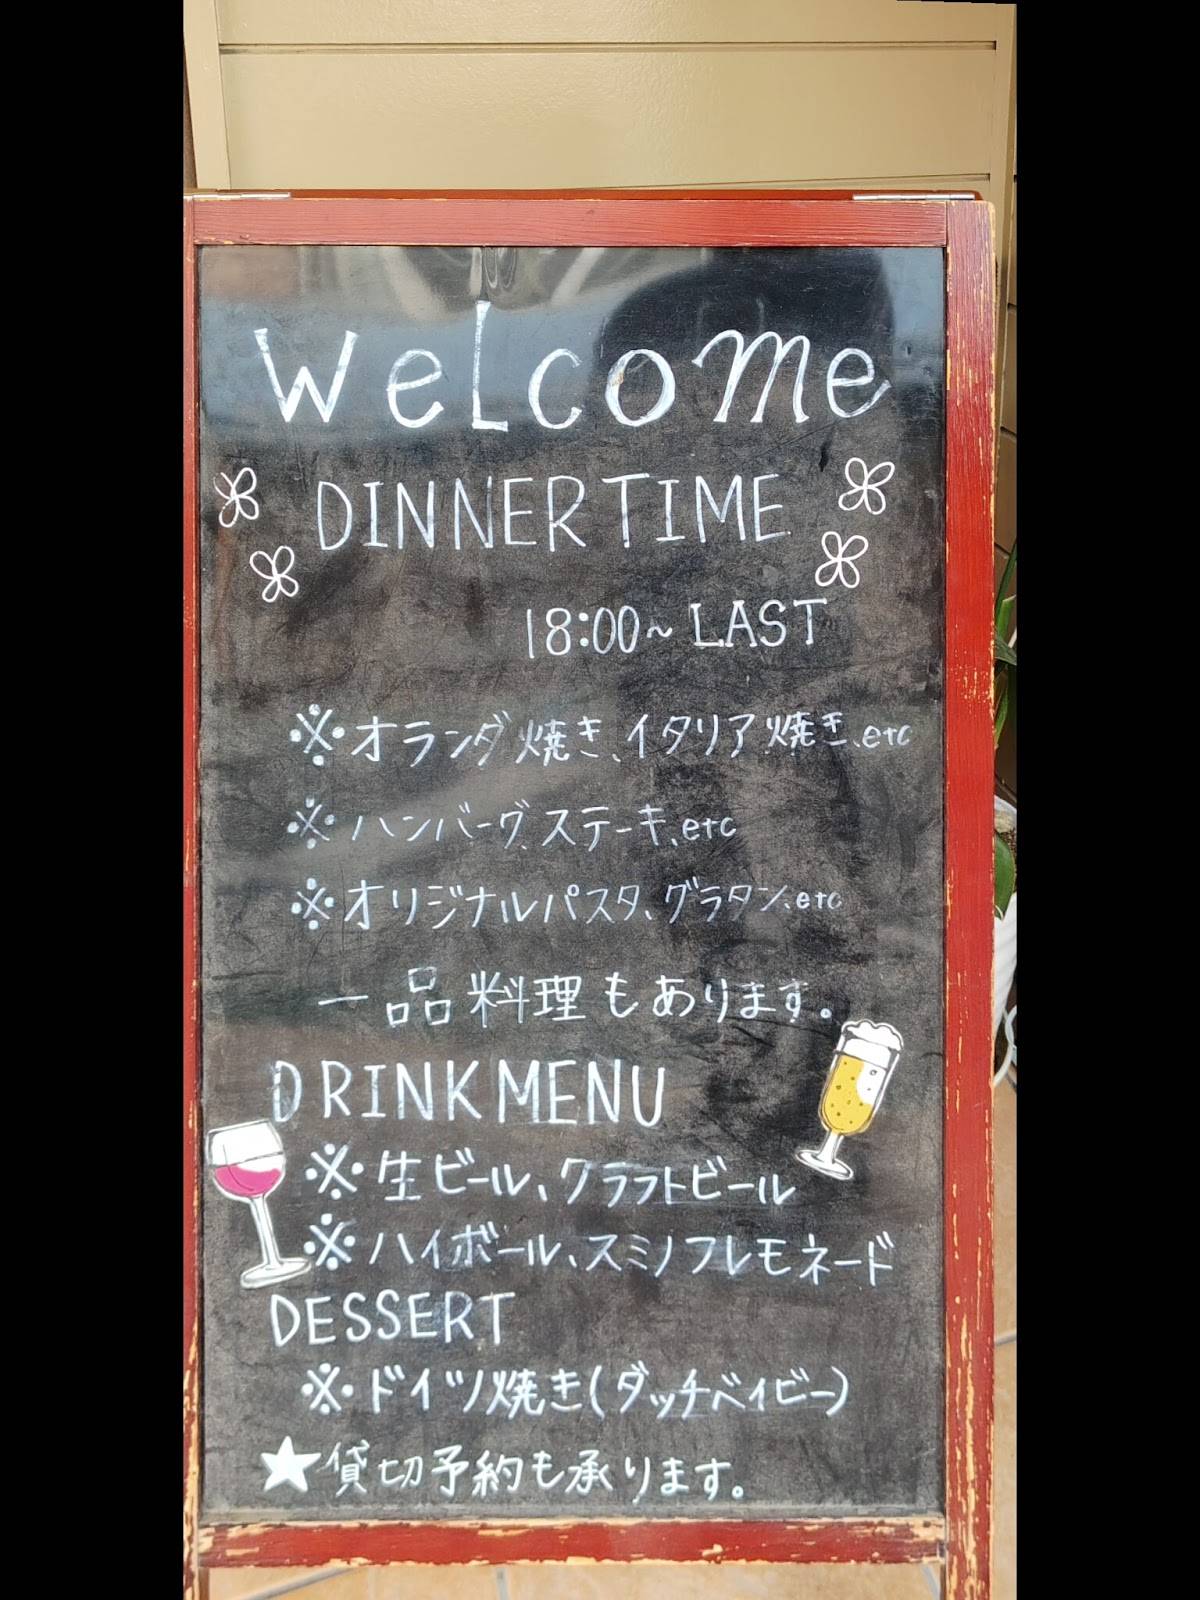 Welcome
DINNER TIME
18:00~ LAST
※オランダ焼き、イタリア焼き、etc
※ハンバーグ、ステーキ、etc
※オリジナルパスタ、グラタン、etc
一品料理もあります。
DRINK MENU
※生ビール、クラフトビール
※ハイボール、スミノフレモネード
DESSERT
※ドイツ焼き(ダッチベイビー)
★貸切予約も承ります。